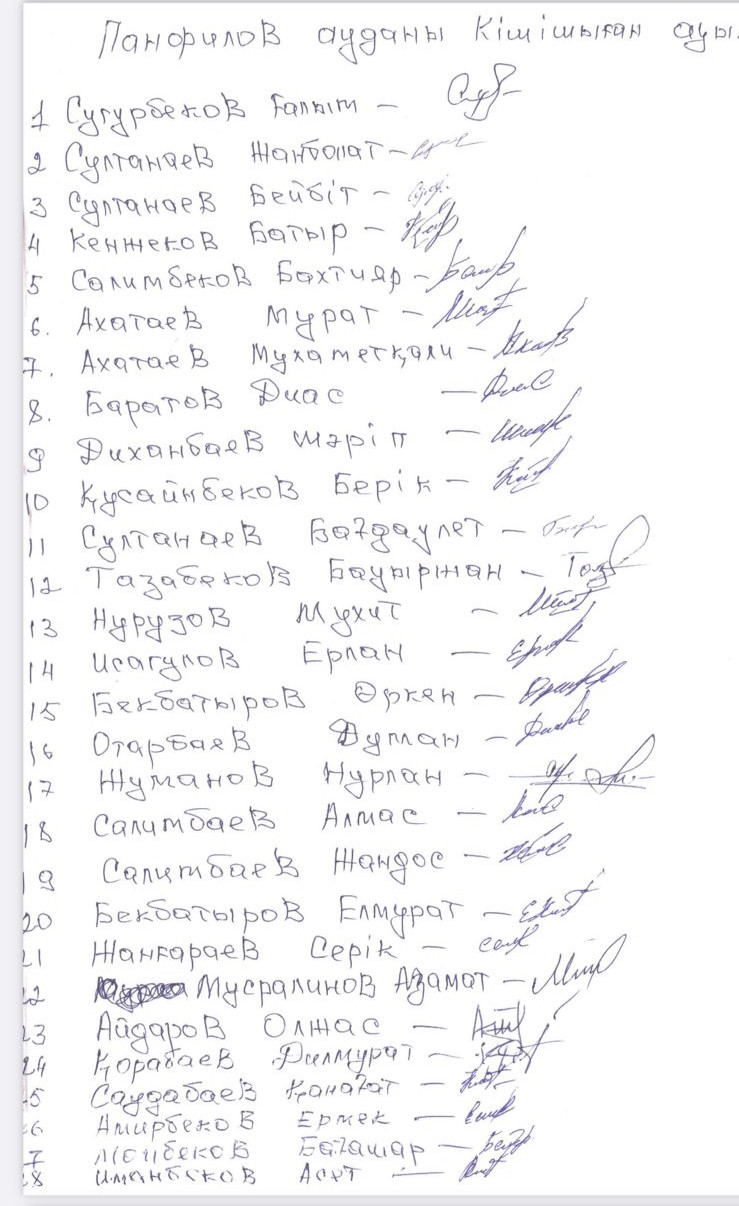 Панфилов ауданы Кішішыған ауы
1 Сугурбеков Ғалым –
2 Султанаев Жанболат –
3 Султанаев Бейбіт –
4 Кенжеков Батыр –
5 Салимбеков Бахтияр –
6. Ахатаев Мурат –
7. Ахатаев Мухаметқали –
8. Баратов Диас –
9 Диханбаев Шәріп –
10 Құсайнбеков Берік –
11 Султанаев Бағдаулет –
12 Тазабеков Бауыржан –
13 Нурузов Мухит –
14 Исагулов Ерлан –
15 Бекбатыров Өркен –
16 Отарбаев Думан –
17 Жуманов Нурлан –
18 Салимбаев Алмас –
19 Салимбаев Жандос –
20 Бекбатыров Елмурат –
21 Жанғараев Серік –
22 Мусралинов Азамат –
23 Айдаров Олжас –
24 Қорабаев Дилмурат –
25 Саудабаев Қанағат –
26 Амирбеков Ермек –
27 Бағашар –
28 Иманбеков Асет –